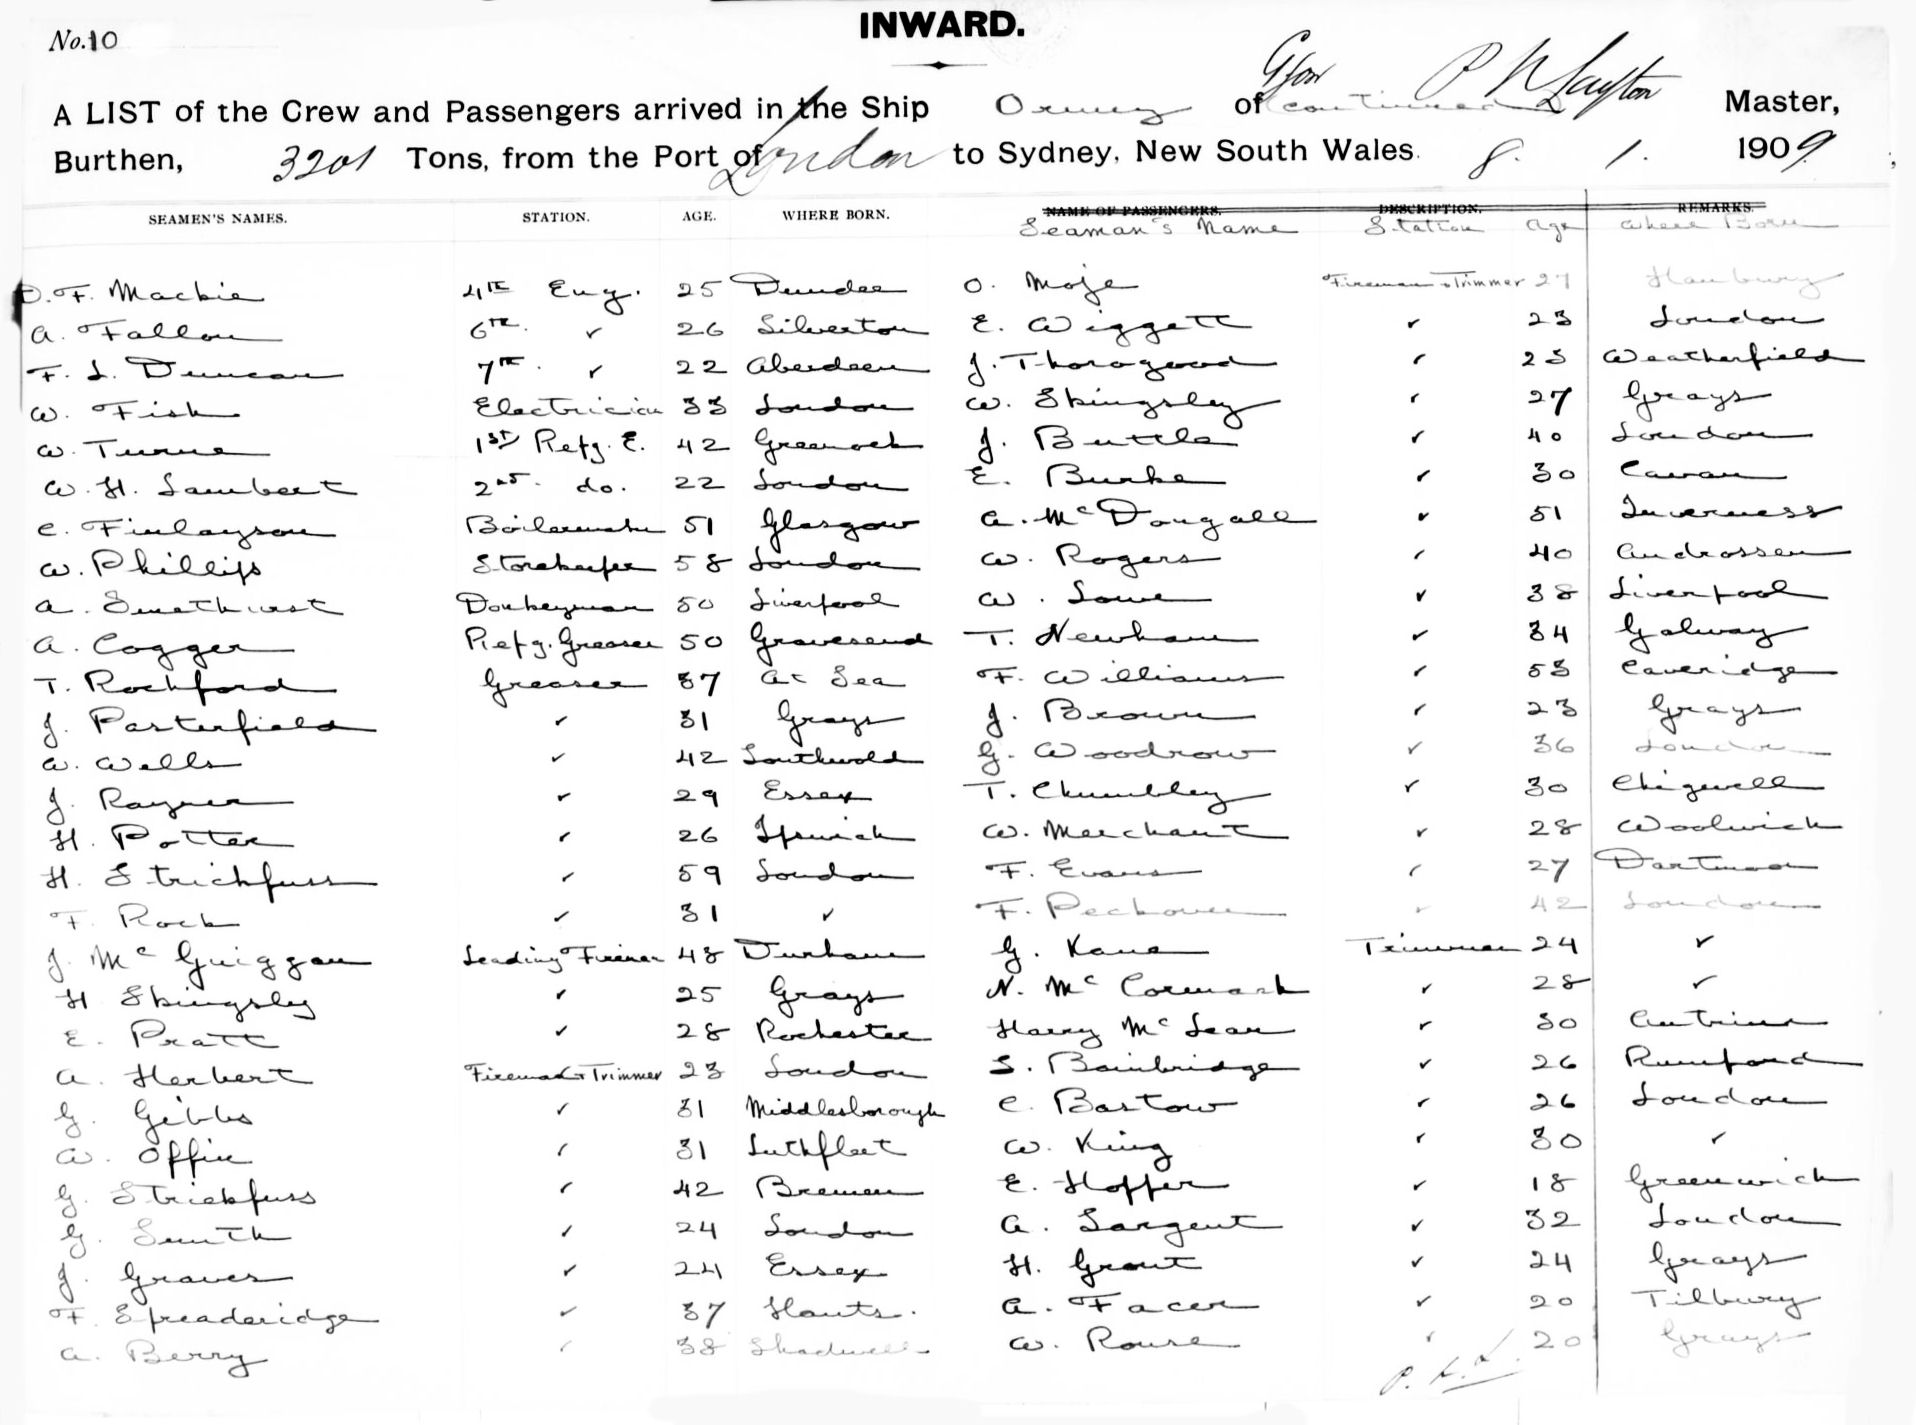 No. 10
INWARD.
A LIST of the Crew and Passengers arrived in the Ship Ormuz of Gsow continued P N Layton Master,
Burthen, 3201 Tons, from the Port of London to Sydney, New South Wales. 8. 1. 1909
SEAMEN'S NAMES. STATION. AGE. WHERE BORN. NAME OF PASSENGERS. DESCRIPTION. REMARKS.
Seaman's Name Station Age Where Born
D. F. Mackie 4TH Eng. 25 Dundee O. Moje Fireman & Trimmer 27 Hamburg
A. Fallon 6TH. ✓ 26 Silverton E. Wiggett ✓ 23 London
F. L. Duncan 7TH. ✓ 22 Aberdeen J. Thorogood ✓ 23 Weatherfield
W. Fisk Electrician 33 London W. Skingsley ✓ 27 Grays
W. Turne 1ST Refg. E. 42 Greenock J. Buttle ✓ 40 London
W. H. Lambert 2nd. do. 22 London E. Burke ✓ 30 Cavan
C. Finlayson Boilermaker 51 Glasgow A. McDougall ✓ 51 Inverness
W. Phillips Storekeeper 58 London W. Rogers ✓ 40 Androssen
A. Smethurst Donkeyman 50 Liverpool W. Lowe ✓ 38 Liverpool
A. Cogger Refg. Greaser 50 Gravesend T. Newham ✓ 34 Galway
T. Rochford Greaser 37 At Sea F. Williams ✓ 53 Caveridge
J. Pasterfield ✓ 31 Grays J. Brown ✓ 23 Grays
W. Wells ✓ 42 Southwold G. Woodrow ✓ 36 London
J. Rayner ✓ 29 Essex T. Chumbley ✓ 30 Chigwell
H. Potter ✓ 26 Ipswich W. Merchant ✓ 28 Woolwich
H. Strickfuss ✓ 59 London F. Evans ✓ 27 Dartmoor
F. Rock ✓ 31 ✓ F. Peckover ✓ 42 London
J. McGuiggan Leading Fireman 48 Durham G. Kane Trimmer 24 ✓
H. Skingsley ✓ 25 Grays N. McCormack ✓ 28 ✓
E. Pratt ✓ 28 Rochester Harry McLean ✓ 30 Antrim
A. Herbert Fireman & Trimmer 23 London S. Bainbridge ✓ 26 Rumford
G. Gibbs ✓ 31 Middlesborough C. Bastow ✓ 26 London
W. Offin ✓ 31 Suthfleet W. King ✓ 30 ✓
G. Strickfuss ✓ 42 Bremen E. Hoffer ✓ 18 Greenwich
G. Smith ✓ 24 London A. Sargent ✓ 32 London
J. Graves ✓ 24 Essex H. Grout ✓ 24 Grays
F. Spreadridge ✓ 37 Hants. A. Facer ✓ 20 Tilbury
A. Berry ✓ 38 Shadwell W. Rouse ✓ 20 Grays